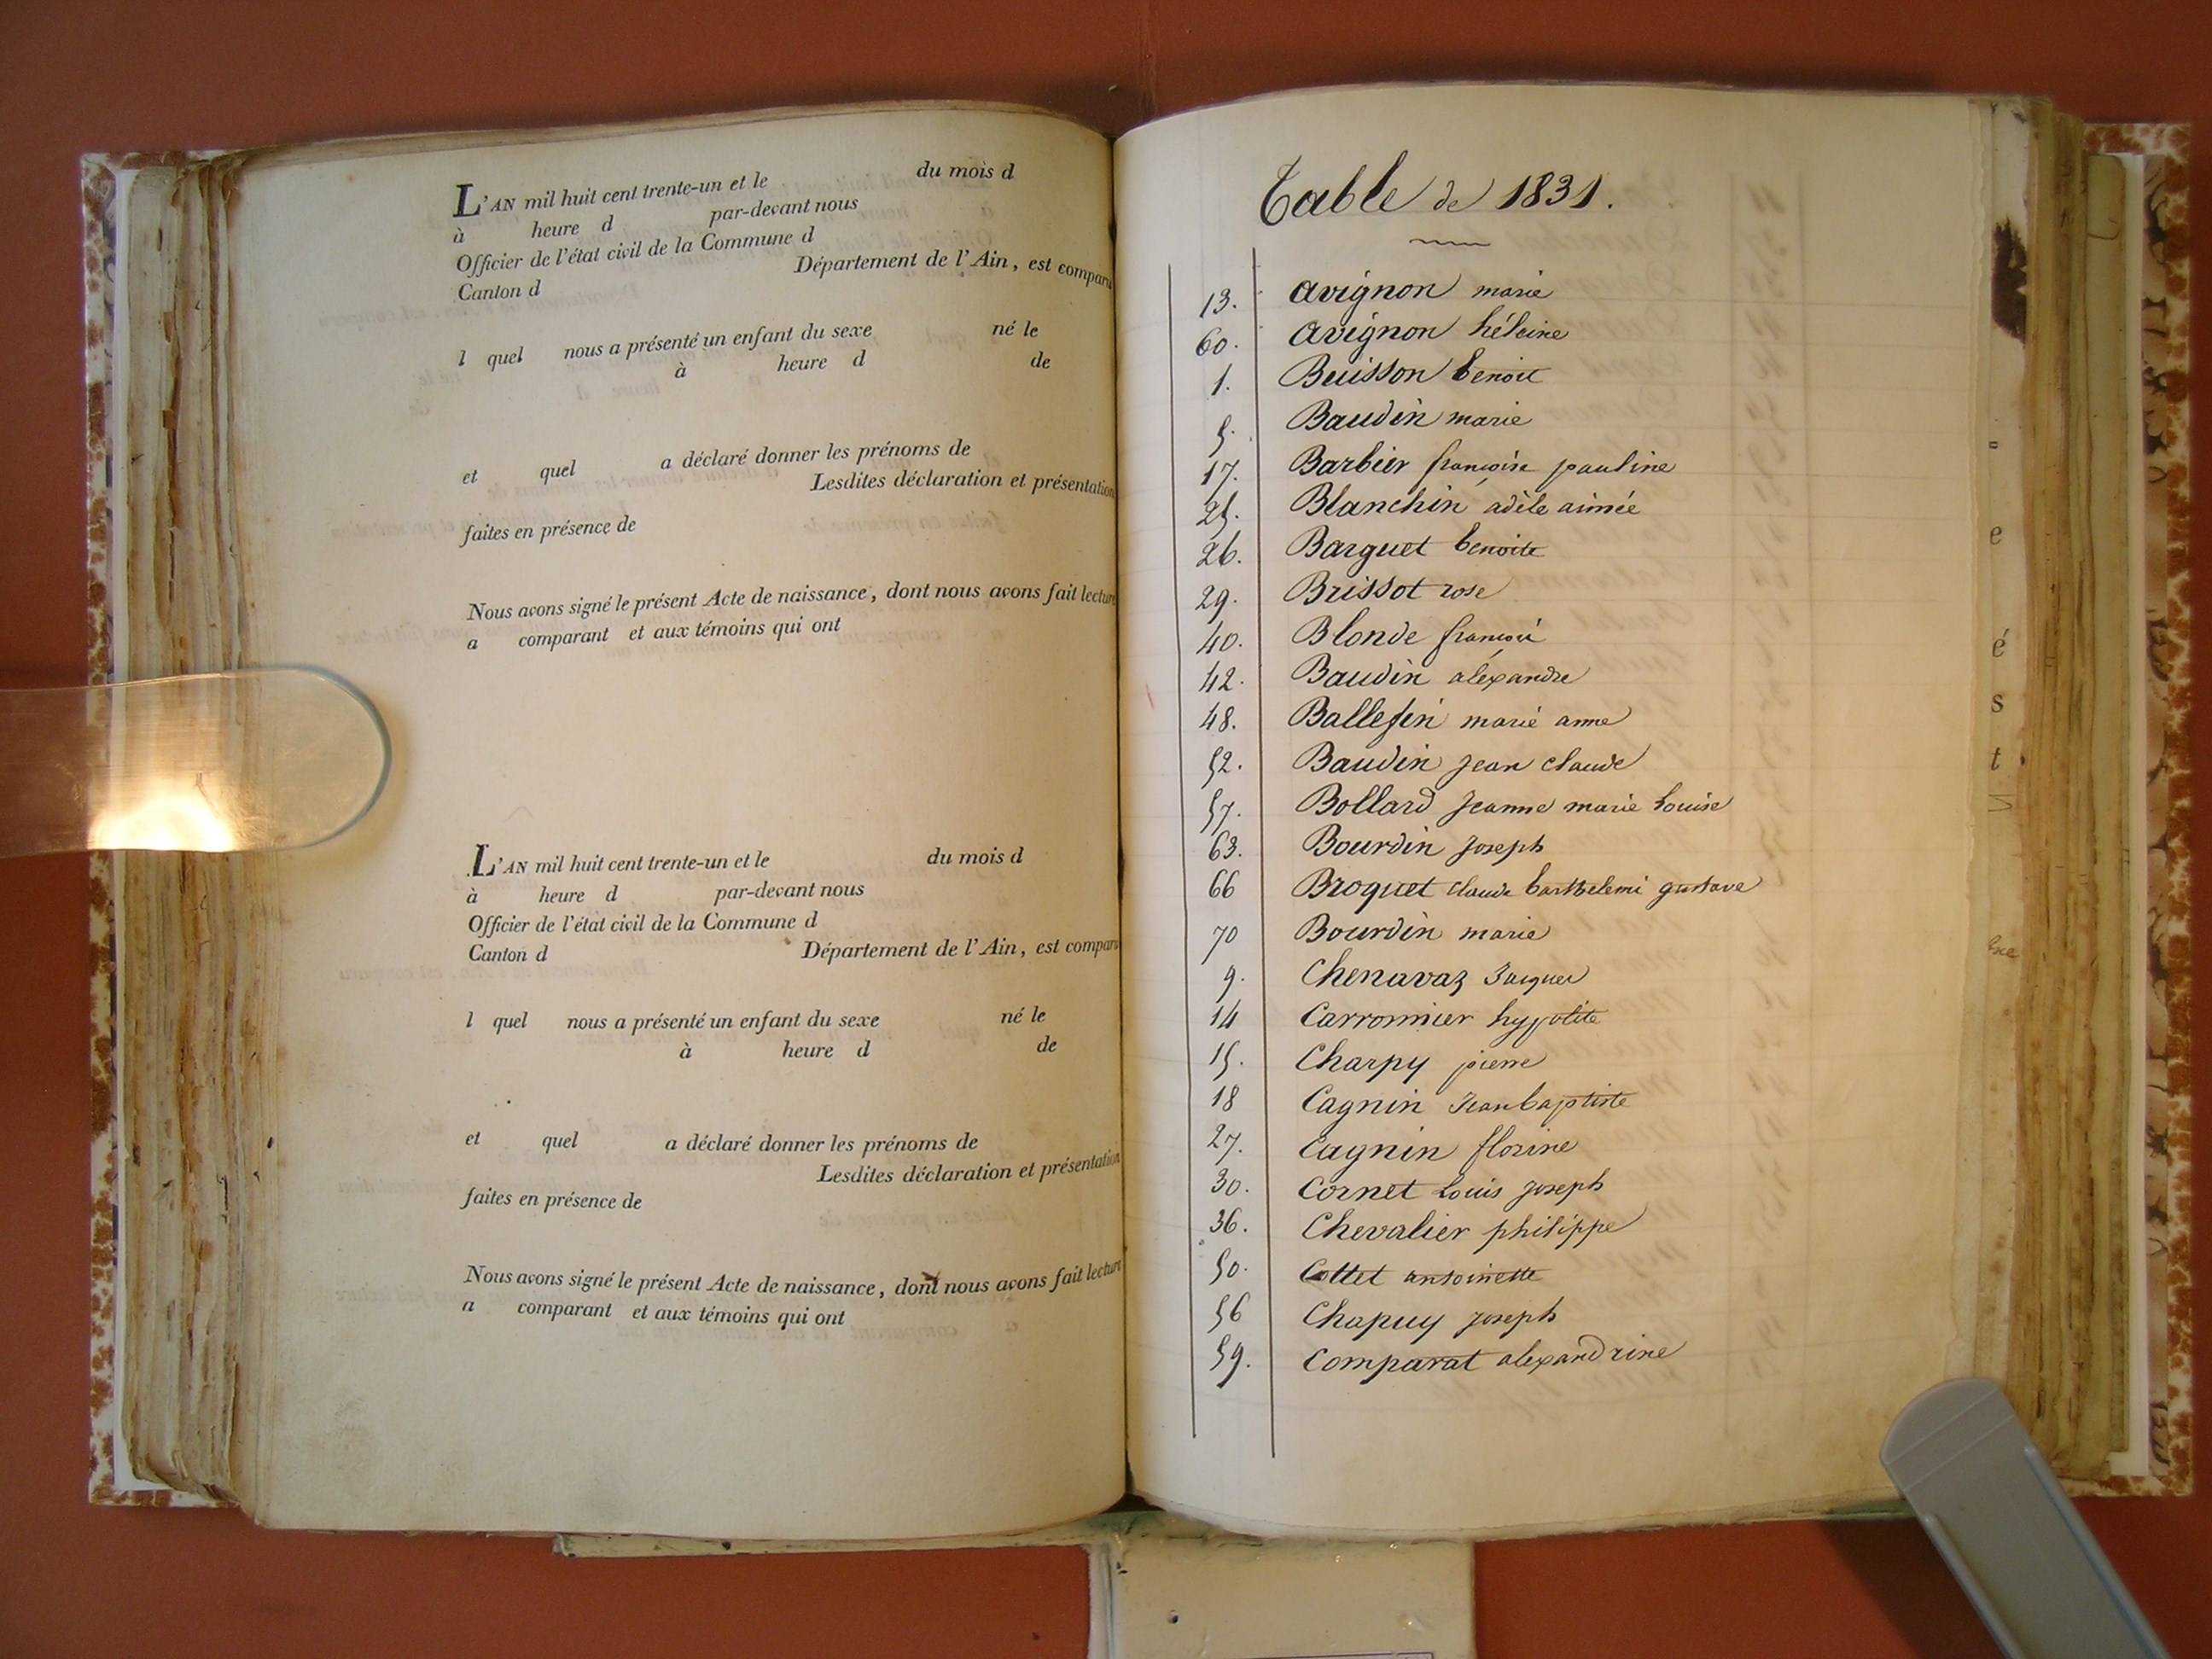 L'AN mil huit cent trente-un et le du mois d
à heure d par-devant nous
Officier de l'état civil de la Commune d
Canton d Département de l'Ain, est comparu
l quel nous a présenté un enfant du sexe né le
à heure d de
et quel a déclaré donner les prénoms de
Lesdites déclaration et présentation
faites en présence de
Nous avons signé le présent Acte de naissance, dont nous avons fait lecture
a comparant et aux témoins qui ont
L'AN mil huit cent trente-un et le du mois d
à heure d par-devant nous
Officier de l'état civil de la Commune d
Canton d Département de l'Ain, est comparu
l quel nous a présenté un enfant du sexe né le
à heure d de
et quel a déclaré donner les prénoms de
Lesdites déclaration et présentation
faites en présence de
Nous avons signé le présent Acte de naissance, dont nous avons fait lecture
a comparant et aux témoins qui ont
Table de 1831.
13. avignon marie
60. avignon héleine
1. Buisson benoit
5. Baudin marie
17. Barbier françoise pauline
25. Blanchin adèle aimée
26. Barguet benoite
29. Brissot rose
40. Blonde françois
42. Baudin aléxandre
48. Ballefin marie anne
52. Baudin jean claude
57. Bollard jeanne marie louise
63. Bourdin joseph
66 Broquet claude barthelemi gustave
70 Bourdin marie
9. Chenavaz Jacques
14 Carronnier hyppolite
15. Charpy pierre
18 Cagnin Jean baptiste
27. Cagnin florine
30. Cornet louis joseph
36. Chevalier philippe
50. Cottet antoinette
56 Chapuy joseph
59. Comparat alexandrine
e
é
s
t